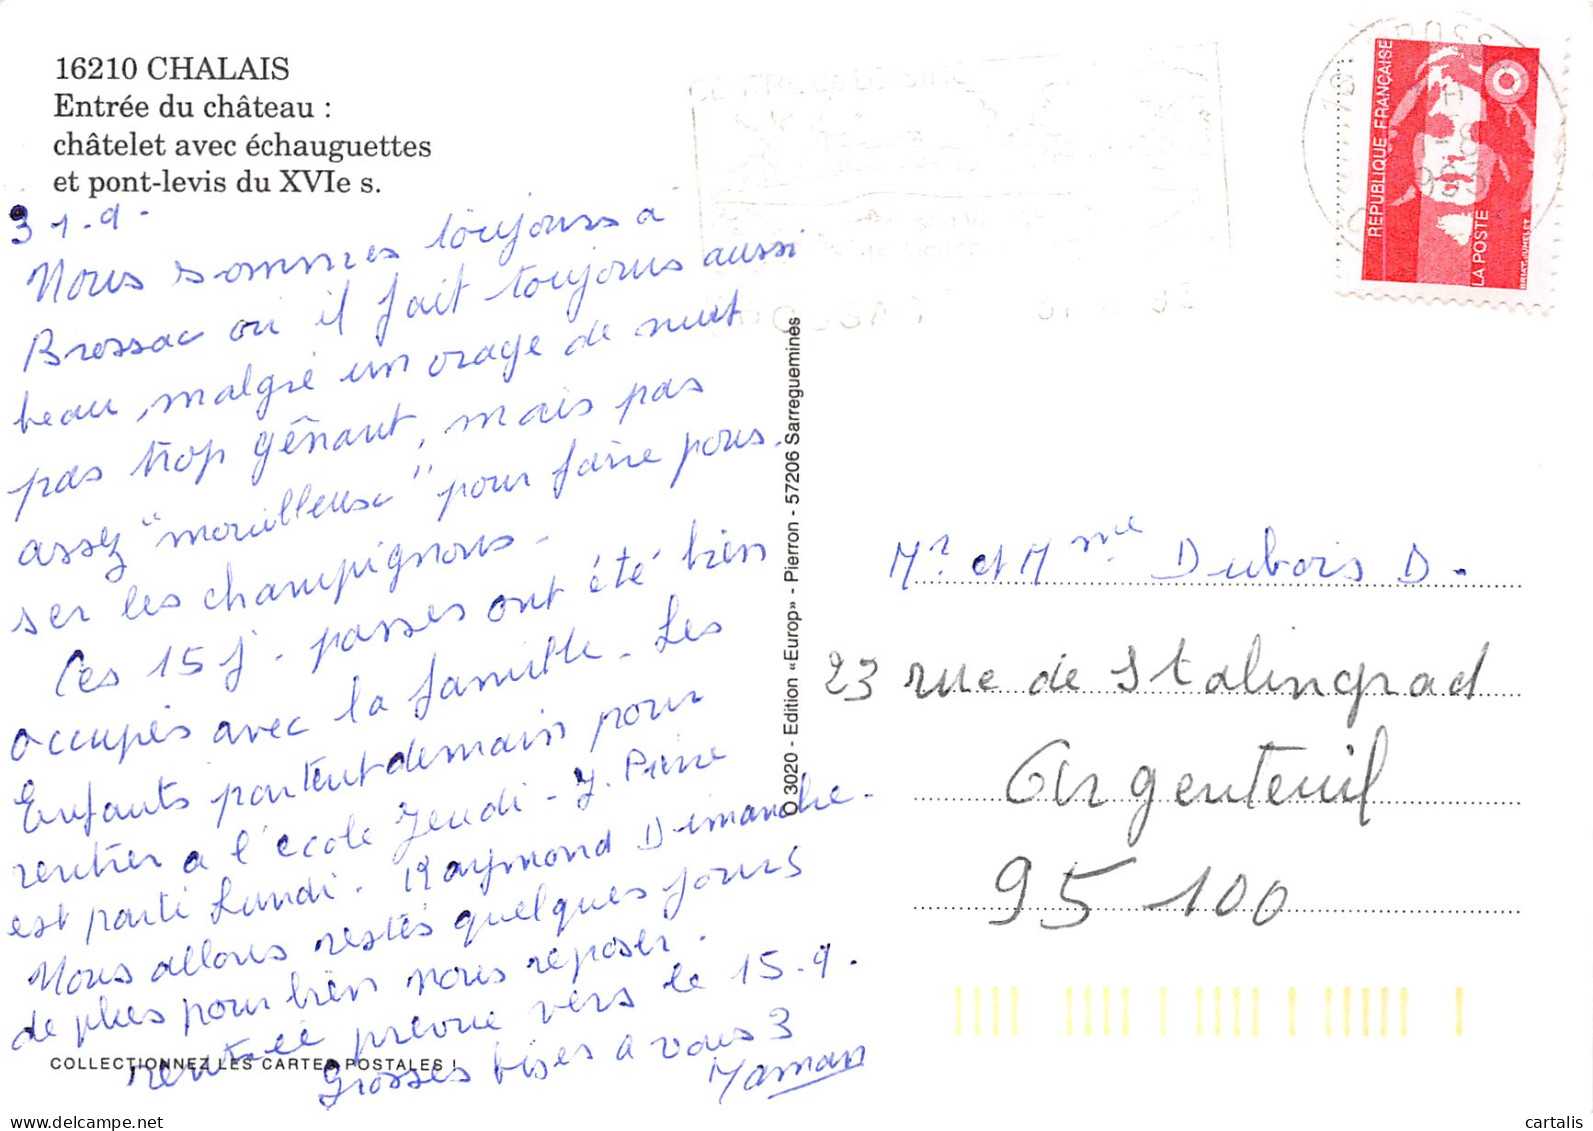 16210 CHALAIS
Entrée du château :
châtelet avec échauguettes
et pont-levis du XVIe s.
31.9.
Nous sommes toujours à
Brossac où il fait toujours aussi
beau, malgré un orage de nuit
pas trop gênant, mais pas
assez "merveilleux" pour faire pous.
ser les champignons.
Ces 15 j. passés ont été bien
occupés avec la famille. Les
Enfants partent demain pour
rentrer a l'école Jeudi. J. Pierre
est parti Lundi. Raymond Dimanche.
Nous allons restés quelques jours
de plus pour bien nous reposer.
rentrée prévue vers le 15.9.
Grosses bises a vous 3
Maman
COLLECTIONNEZ LES CARTES POSTALES !
O 3020 - Edition «Europ» - Pierron - 57206 Sarreguemines
RÉPUBLIQUE FRANÇAISE
LA POSTE
BRIAT-JUMELET
Mr et Mme Dubois D.
23 rue de Stalingrad
Argenteuil
95 100
delcampe.net
cartalis